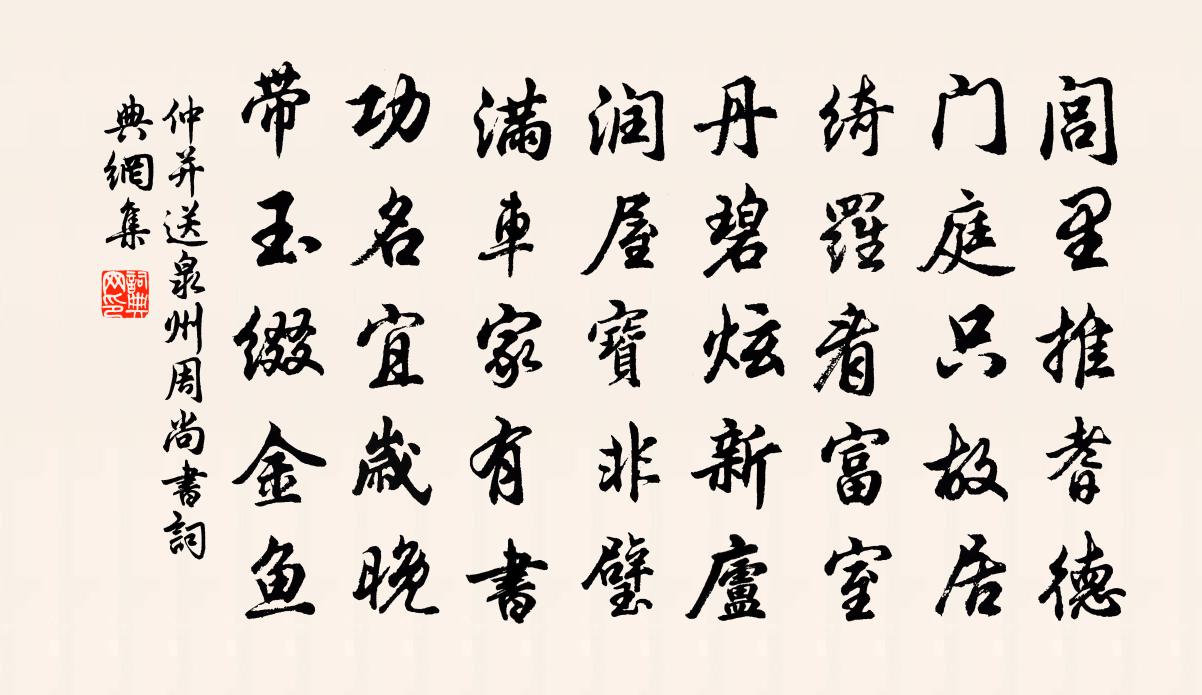 闾里推耆德
门庭只故居
绮羅看富室
丹碧炫新廬
润屋寶非璧
满車家有書
功名宜歲晚
带玉缀金鱼
仲并送泉州周尚書詞
典網集
詞典
网印